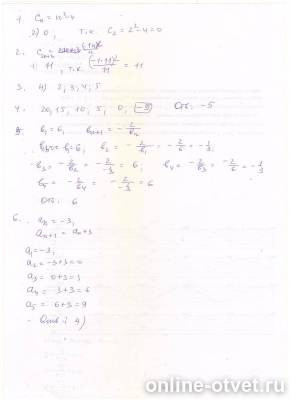 1. Cn = n²-4
2) 0, т.к. C₂ = 2²-4=0
2.
1) 11, т.к. = 11
3. 4) 2; 3; 4; 5
4. 20, 15, 10, 5, 0, -5 Отв: -5
5. b₁=6, bₙ₊₁ = -2/bₙ
b₁=6; b₂ = -2/b₁ = -2/6 = -1/3;
b₃ = -2/b₂ = = 6; b₄ = -2/b₃ = -2/6 = -1/3
b₅ = -2/b₄ = = 6
Отв: 6
6. = -3;
aₙ₊₁ = aₙ+3
a₁=-3;
a₂ = -3+3=0
a₃ = 0+3=3
a₄ = 3+3=6
a₅ = 6+3=9
Ответ: 4)
online-otvet.ru